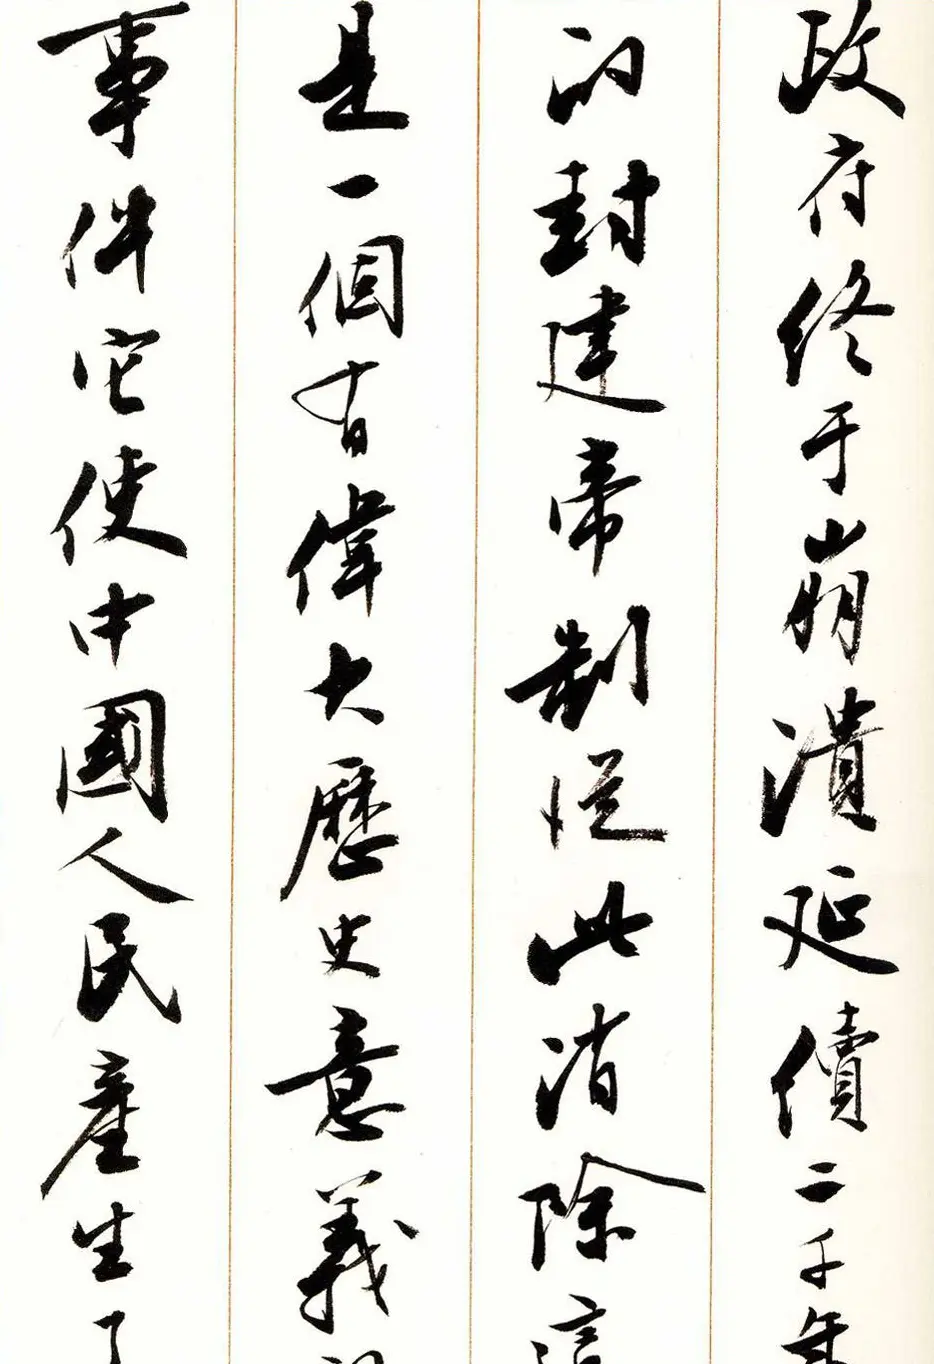 政府終于崩潰延續二千年
的封建帝制從此消除這
是一個有偉大歷史意義
事件它使中國人民產生了